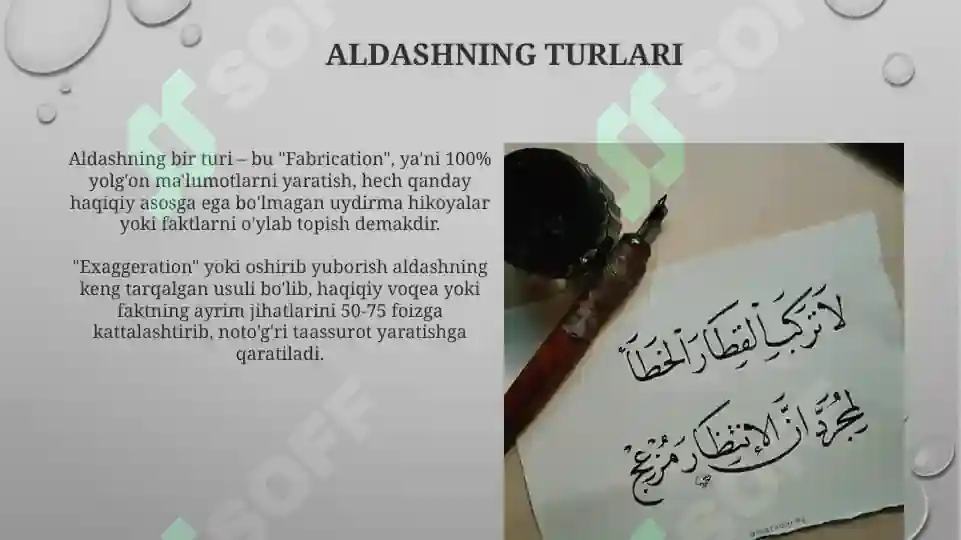 ALDASHNING TURLARI
Aldashning bir turi – bu "Fabrication", ya'ni 100%
yolg'on ma'lumotlarni yaratish, hech qanday
haqiqiy asosga ega bo'lmagan uydirma hikoyalar
yoki faktlarni o'ylab topish demakdir.
"Exaggeration" yoki oshirib yuborish aldashning
keng tarqalgan usuli bo'lib, haqiqiy voqea yoki
faktning ayrim jihatlarini 50-75 foizga
kattalashtirib, noto'g'ri taassurot yaratishga
qaratiladi.
لَا تَرْكَبِ الْقِطَارَ الْخَطَأ
لِمُجَرَّدِ أَنَّ الإِنتِظَارَ مُزْعِجٌ
SOFF
SOFF
SOFF
SOFF